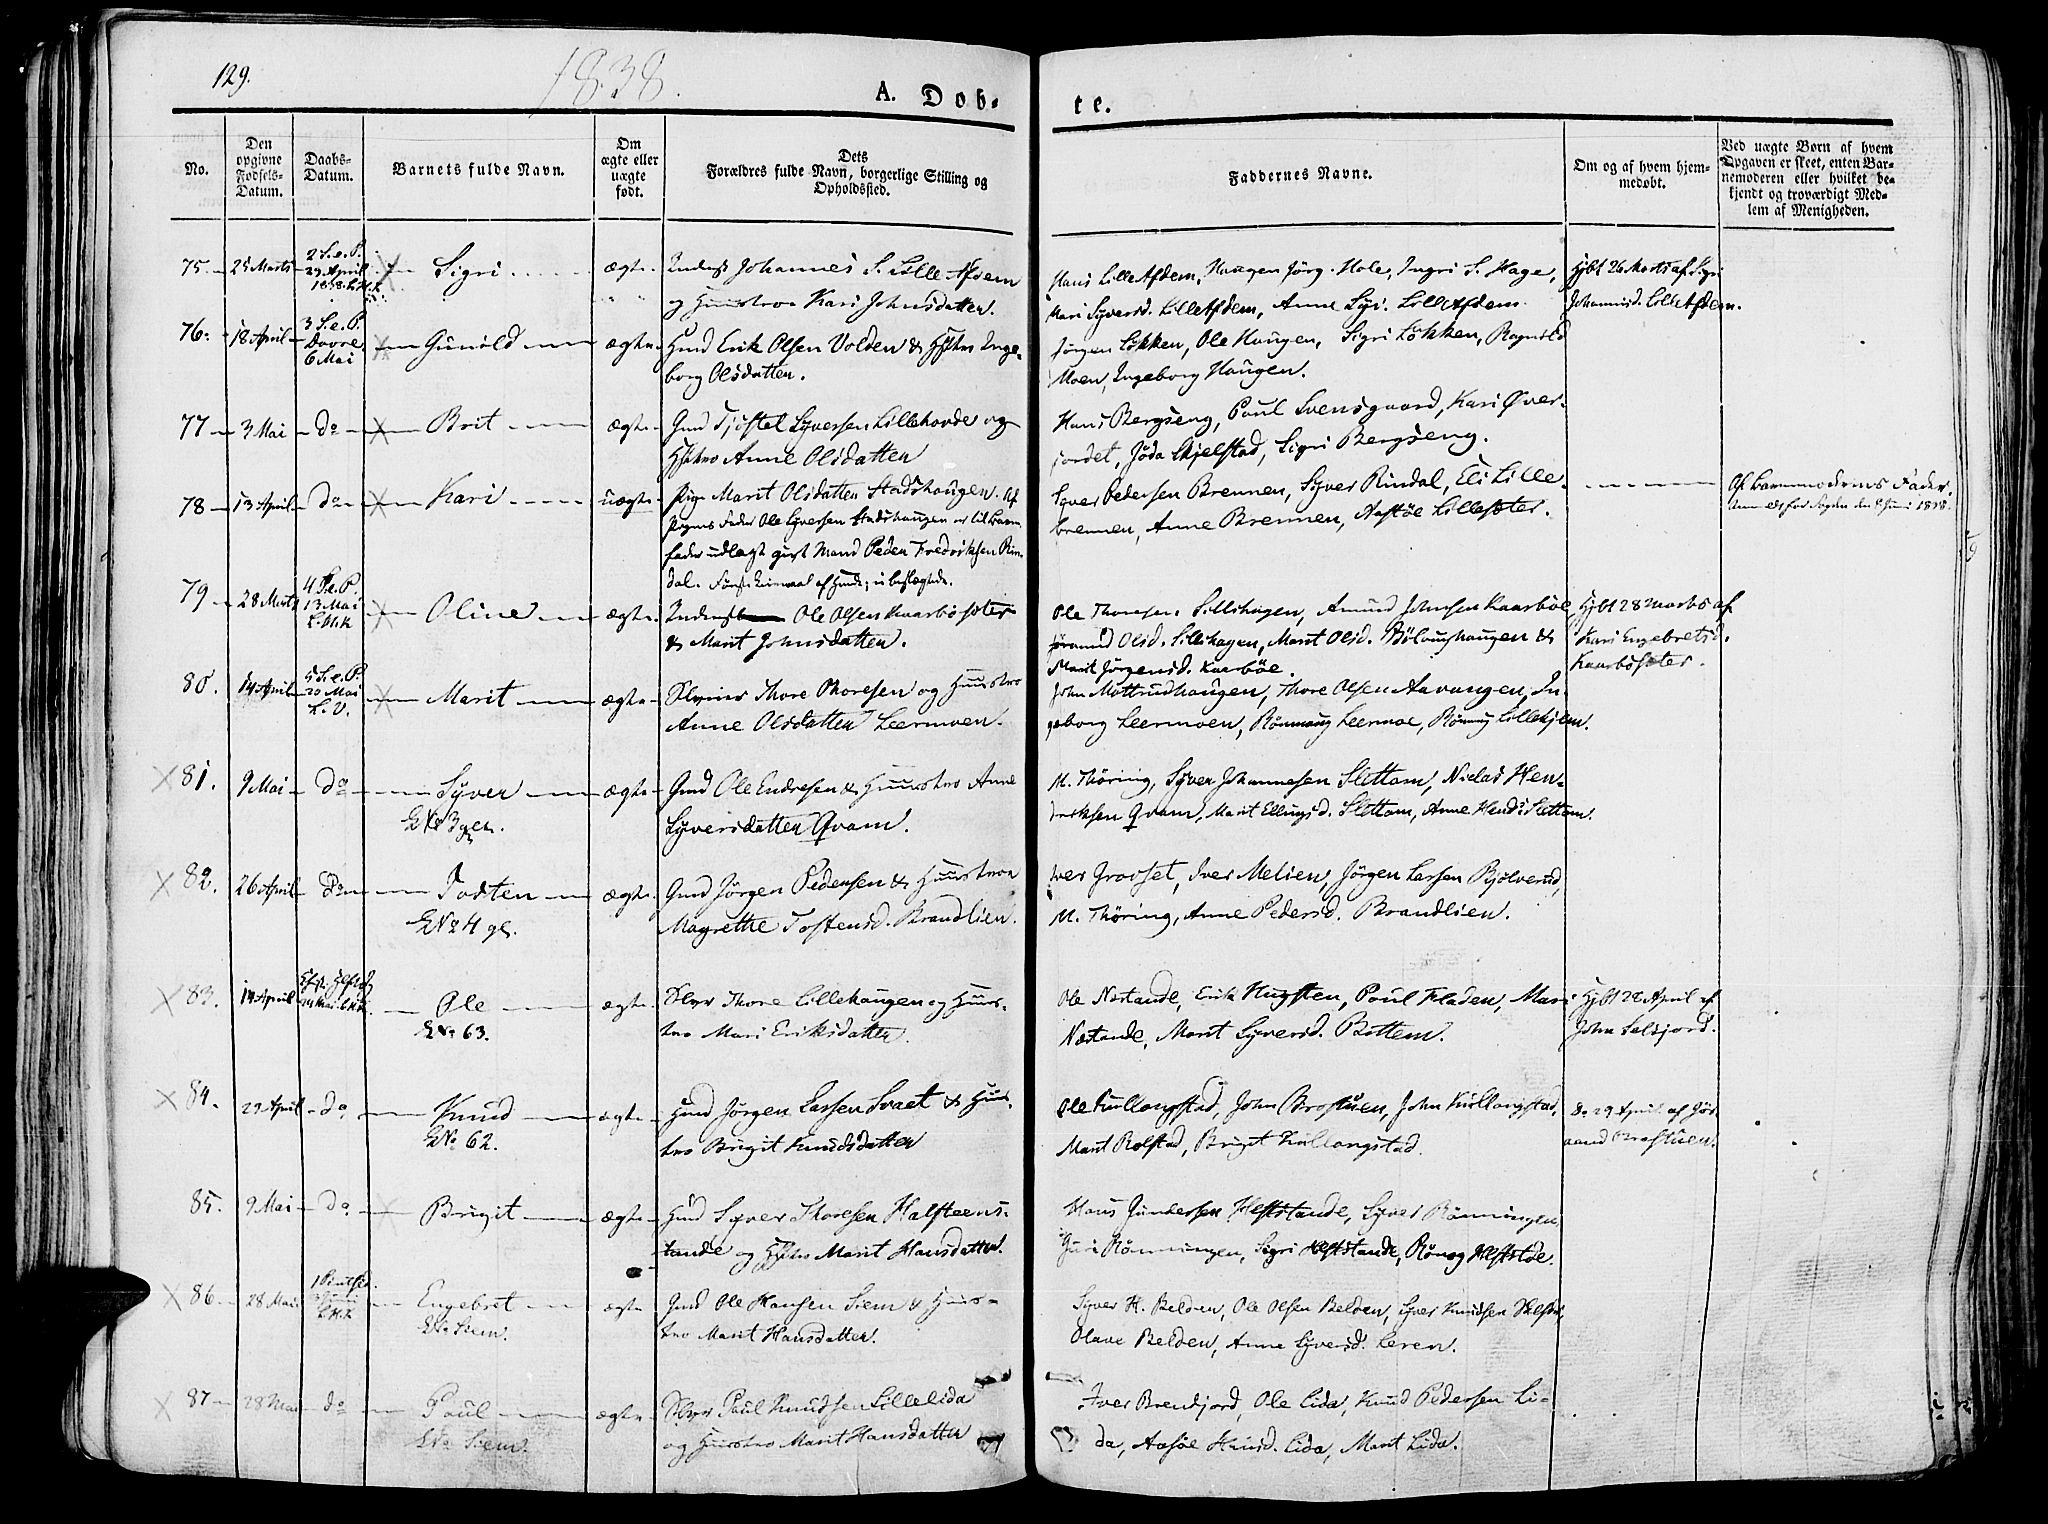 129.
1838.
A. Døb-
te.
No.
Den
opgivne
Fødsels-
Datum.
Daabs-
Datum.
Barnets fulde Navn.
Om
ægte eller
uægte
født.
Dets
Forældres fulde Navn, borgerlige Stilling og
Opholdssted.
Faddernes Navne.
Om og af hvem hjem-
medøbt.
Ved uægte Børn af hvem
Opgaven er skeet, enten Bar-
nemoderen eller hvilket be-
kjendt og troværdigt Med-
lem af Menigheden.
75. 25 Marts 2 S. e. P. 29 April 1838 Sigri ægte Johannes S. Lille Afdem
og Huustroe Kari Johnsdatter.
Hans Lille Afdem, Haugen Jörg. Hole, Ingri S. Hage,
Mari Syversd. Lille Afdem, Anne Lille Afdem
Hjbt 26 Marts af Sigri
Johannesd. Lille Afdem.
76. 18 April 3 S. e. P. Dovre 6 Mai Gunild ægte Erik Olsen Volden & Inge-
borg Olsdatter.
Jörgen Lökken, Ole Haugen, Sigri Lökken, Ragnild
Moen, Ingeborg Haugen.
77 3 Mai do Brit ægte Gmd Tjöstel Syversen Lillehovde og
Anne Olsdatter
Hans Bergseng, Poul Svensgaard, Kari Øver-
jordet, Jöda Skjelstad, Sigri Bergseng.
78 13 April do Kari uægte Pige Marit Olsdatter Stadshaugen. Af
Pigens Fader Ole Syversen Stadshaugen er til Barne-
fader udlagt gift Mand Peder Fredriksen Rin-
dal. Første af
Syver Pedersen Brennen, Syver Rindal, Eli Lille-
brennen, Anne Brennen, Aastöe Lillesæter.
Af Barnemoderens Fader.
Anmeldt for Sognepr. den 8 Juni 1838.
79 28 Marts 4 S. e. P. 13 Mai Oline ægte Ole Olsen Kaarbösæter
& Marit Johnsdatter.
Ole Thoresen Lillehagen, Amund Johnsen Kaarböe,
Jöramd Olsd. Lillehagen, Marit Olsd. &
Marit Jörgensd. Kaarböe.
Hjbt 28 Marts af
Kari Engebretsd.
Kaarbösæter.
80. 14 April 5 S. e. P. 20 Mai Marit ægte Thore Thoresen og Huustro
Anne Olsdatter Leermoen.
John Mottrudhaugen, Thore Olsen Aavangen, In-
geborg Leermoen, Rönnaug Leermoe, Rönnaug Lillehjem.
81. 9 Mai do Syver ægte Gmd Ole Endresen & Huustro Anne
Syversdatter Qvam.
M. Thöring, Syver Johannesen Slettom, Niclas Hen-
driksen Qvam, Marit Ellingsd. Slettom, Anne Hendr. Slettom.
82. 26 April do Tosten ægte Gmd Jörgen Pedersen & Huustroe
Magrethe Tostensd. Brandlien.
No 4
Iver Melien, Jörgen Larsen Bjölverud,
M. Thöring, Anne Pedersd. Brandlien.
83. 14 April 24 Mai Ole ægte Thore Lillehaugen og Huus-
tro Mari Eriksdatter.
No 63.
Ole Næstande, Erik Hugsten, Poul Fladen, Mari
Næstande, Marit Syversd. Bottem.
Hjbt 28 April af
John Selsjord.
84. 29 April do Knud ægte Jörgen Larsen Svaet & Huus-
tro Brigit Knudsdatter
No 62.
Ole Kullongstad, John Brostuen, John Kullongstad,
Marit Rolstad, Brigit Kullongstad.
Do 29 April af Jör-
aand Brostuen.
85. 9 Mai do Brigit ægte Syver Thoresen Halfsteens-
tande og Marit Hansdatter.
Hans Gundersen Helfstande, Syver Rönningen,
Guri Rönningen, Sigri Helfstande, Rönog Helfstöe.
86. 28 Mai 1 Pintsed. Engebret ægte Gmd Ole Hansen Siem & Huus-
tro Marit Hansdatter.
Siem.
Syver H. Belden, Ole Olsen Belden, Syver Knudsen
Olave Belden, Anne Syversd. Leren.
87 28 Mai do Poul ægte Poul Knudsen Lillelida
og Huustro Marit Hansdatter
Siem.
Iver Brenjord, Ole Lida, Knud Pedersen Li-
da, Aasöe Lida, Marit Lida.